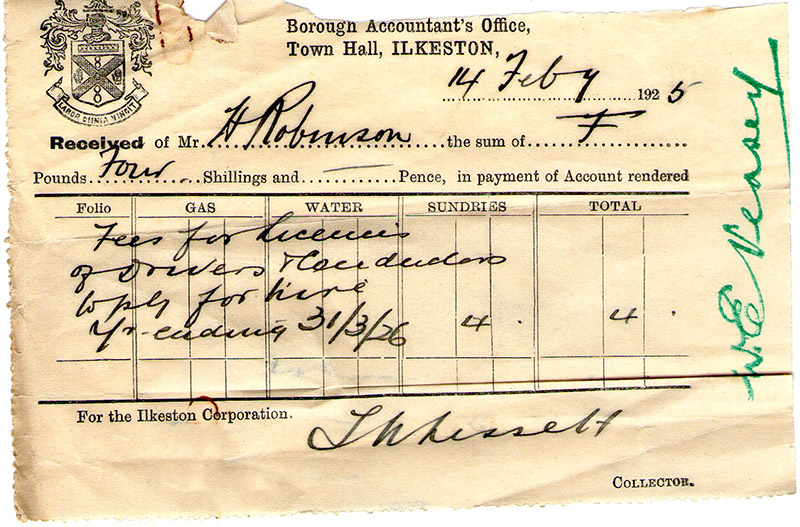 Borough Accountant's Office,
Town Hall, ILKESTON,
14 Feby 1925
LABOR OMNIA VINCIT
Received of Mr. H Robinson the sum of
Pounds Four Shillings and — Pence, in payment of Account rendered
Folio GAS WATER SUNDRIES TOTAL
Fees for Licences
of Drivers & Conductors
to ply for hire
Yr ending 31/3/26 4 . 4 .
For the Ilkeston Corporation.
COLLECTOR.
W.E Veasey